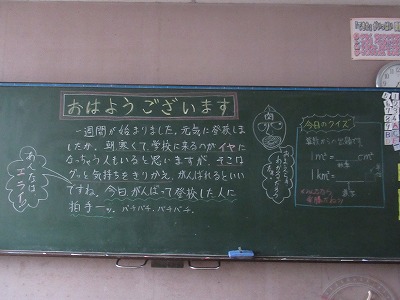 おはようございます
一週間が始まりました。元気に登校しま
したか。朝寒くて学校に来るのがイヤに
なっちゃう人もいると思いますが、そこは
グッと気持ちをきりかえ、がんばれるといい
ですね。今日、がんばって登校した人に
拍手ーッ。パチパチ、パチパチ。
あなたは
エライ!
今日のクイズ
算数からの出題です
1m²= cm²
1km²=